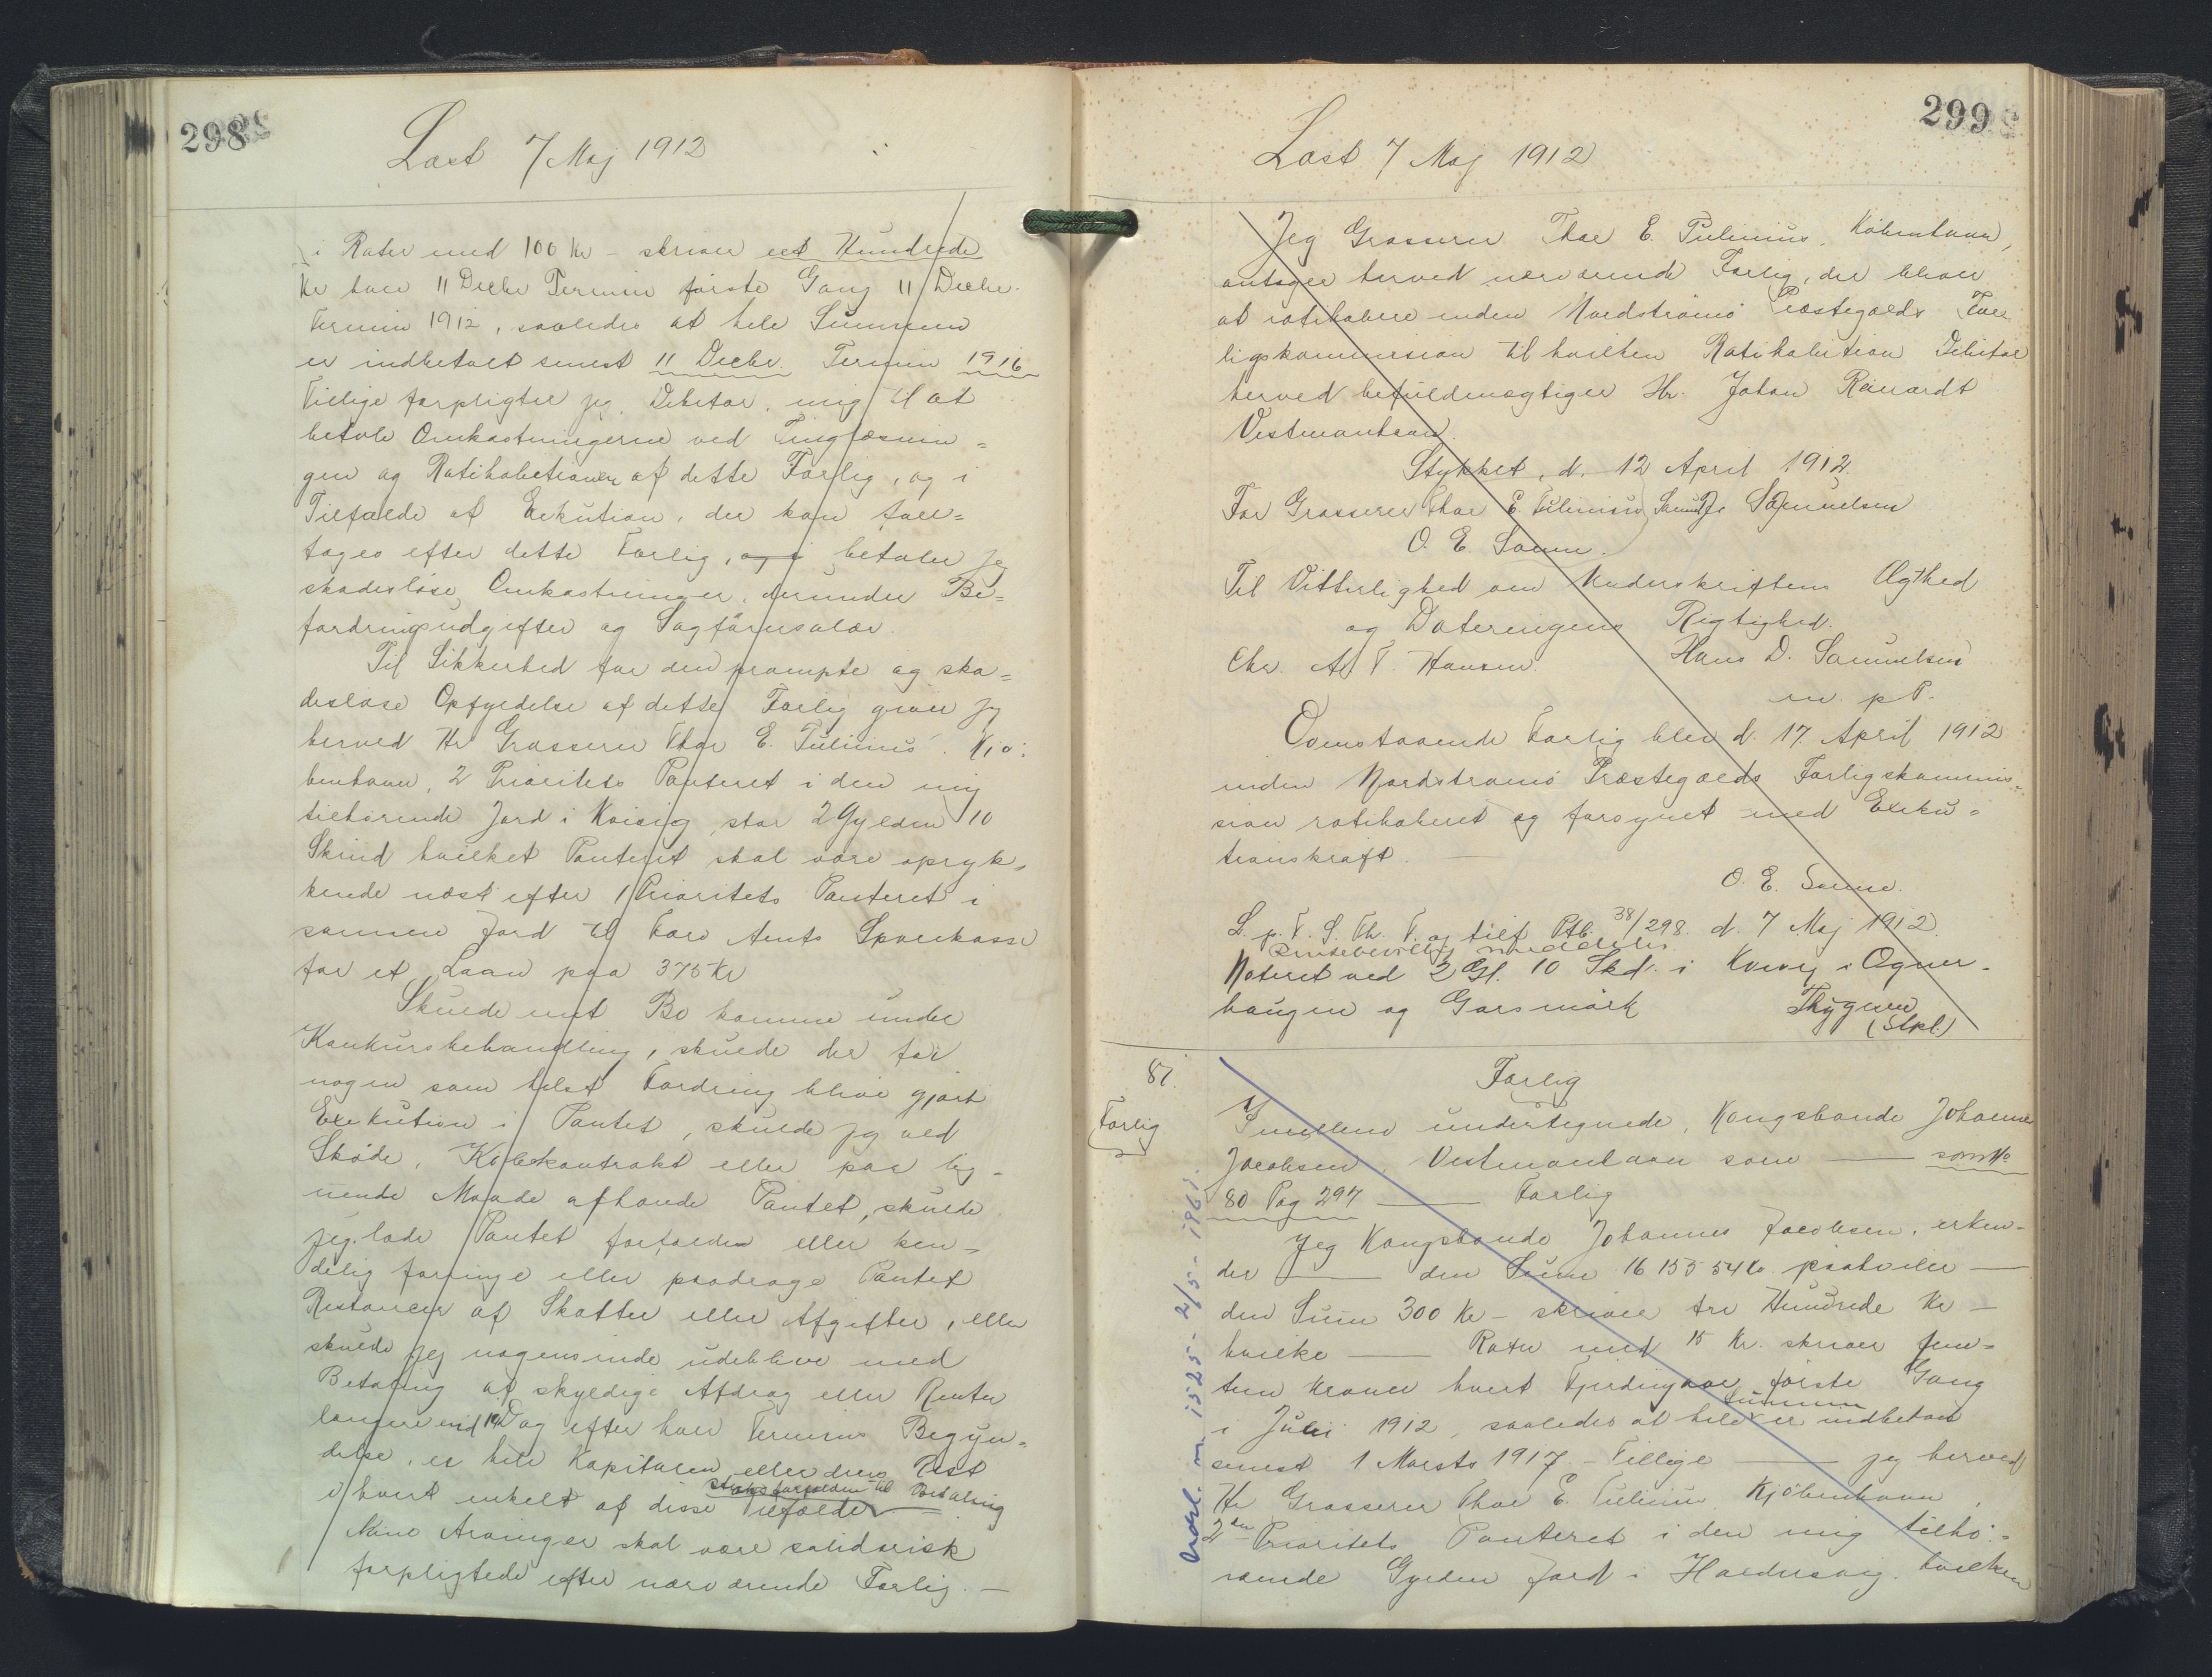 298
Læst 7 Maj 1912
i Rater med 100 Kr - skriver eet Hundrede
Kr hver 11 Decbr Termin første Gang 11 Decbr.
Termin 1912, saaledes at hele Summen
er indbetalt senest 11 Decbr. Termin 1916
Tillige forpligter jeg, Debitor, mig til at
betale Omkostningerne ved Tinglæsnin=
gen og Ratihabitionen af dette Forlig, og i
Tilfælde af Exekution, der kan fore=
tages efter dette Forlig, og i betaler jeg
skadesløse Omkostninger, derunder Be=
fordringsudgifter og Sagførersalær.
Til Sikkerhed for den prompte og ska=
desløse Opfyldelse af dette Forlig giver jeg
herved Hr Grosserer Thor E. Tulinius. Kjø=
benhavn, 2 Prioritets Panteret i den mig
tilhørende Jord i Kvivig, stor 2 Gylden 10
Skind hvilket Panteret skal være opryk=
kende næst efter 1 Prioritets Panteret i
samme Jord til Færø Amts Sparekasse
for et Laan paa 375 Kr
Skulde mit Bo komme under
Konkursbehandling, skulde der for
nogen som helst Fordring blive gjort
Exekution i Pantet, skulde jeg ved
Skøde, Købekontrakt eller paa lig=
nende Maade afhænde Pantet, skulde
jeg lade Pantet forfalden eller ken=
delig forringe eller paadrage Pantet
Restancer af Skatter eller Afgifter, eller
skulde jeg nogensinde udeblive med
Betaling af skyldige Afdrag eller Renter
længere end 14 Dag efter hver Termins Begyn=
delse, er hele Kapitalen eller dens Rest
straks forfalden til Betaling
i hvert enkelt af disse Tilfælde
Mine Arvinger skal være solidarisk
forpligtede efter nærværende Forlig. -
299
Læst 7 Maj 1912
Jeg Grosserer Thor E. Tulinius, København,
antager herved nærværende Forlig, der bliver
at ratihabere inden Nordstrømø Præstegælds For=
ligskommission til hvilken Ratihabition Debitor
herved befuldmægtiger Hr. Johan Reinardt
Vestmanhavn.
Stykket, d. 12 April 1912.
For Grosserer Thor E Tulinius Samuelsen
O. E. Sonne.
Til Vitterlighed om Underskriftens Ægthed
og Dateringens Rigtighed.
Chr. A. T. Hansen. Hans D. Samuelsen
m. p P.
Ovenstaaende Forlig blev d. 17 April 1912
inden Nordstrømø Præstegælds Forligskommis=
sion ratihaberet og forsynet med Exeku=
tionskraft.
O. E. Sonne.
L. p. F. S. Th. T. og tilf Ptb. 38/298. d. 7 Maj 1912.
meddeles.
Noteret ved 2 Gl. 10 Skd. i Kvivig i Ogner=
haugen og Garsmørk
Thygesen
(Stpl.)
81.
Forlig
Forlig
Imellem undertegnede, Kongsbonde Johannes
Jacobsen, Vestmanhavn som — som No
80 Pag 297 — Forlig
Jeg Kongsbonde Johannes Jacobsen, erken=
der — den Sum 16 155 54 paahviler —
den Sum 300 Kr - skriver tre Hundrede Kr -
hvilke — Rater med 15 Kr. skriver fem=
ten Kroner hvert Fjerdingaar første Gang
Summen
i Juli 1912, saaledes at hele er indbetalt
senest 1 Marts 1917. - Tillige — jeg herved
Hr Grosserer Thor E. Tulinius Kjøbenhavn,
2den Prioritets Panteret i den mig tilhø=
rende Gylden Jord i Haldersvig, hvilken
Avsl. nr. 1525 - 2/5 - 1961.